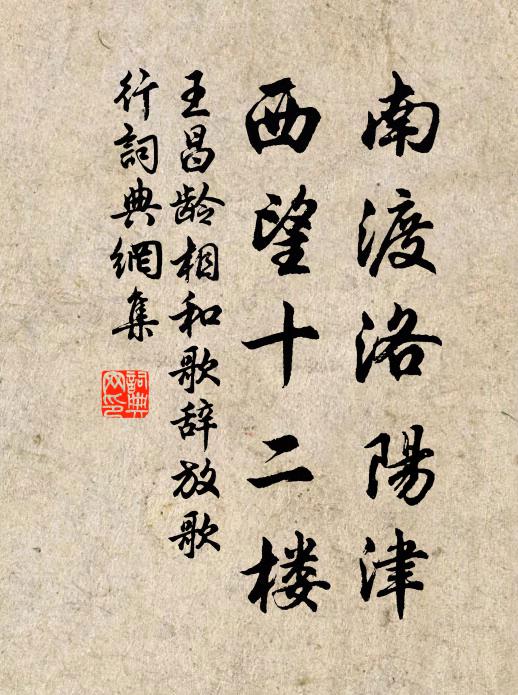 南渡洛陽津
西望十二楼
王昌龄相和歌辞放歌
行詞典網集
詞典网印